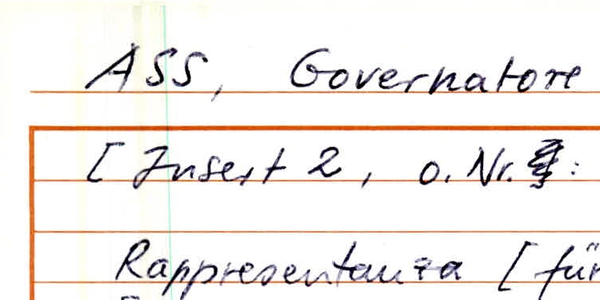 ASS, Governatore
[Insert 2, o. Nr. :
Rappresentanza [für